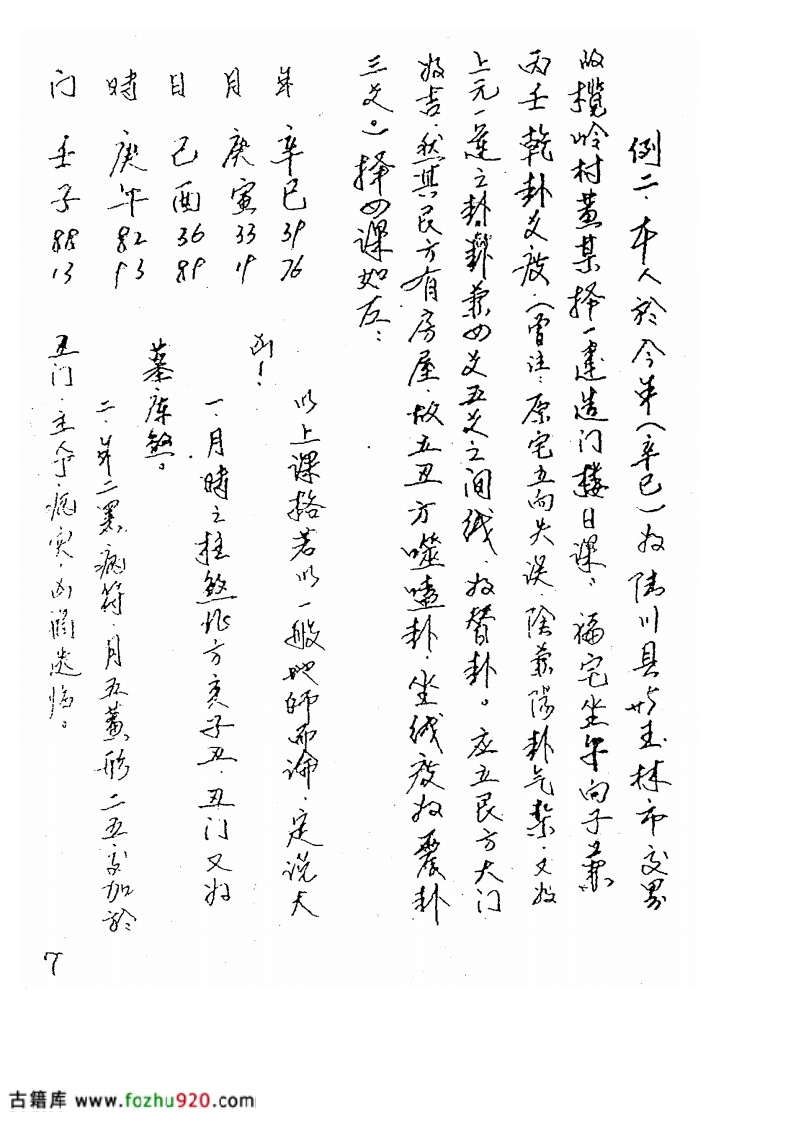 例二．本人於今年（辛巳）为陆川县与玉林市交界
的榄岭村黄某择一建造门楼日课。福宅坐午向子兼
丙壬乾卦爻度．（曾注：原宅立向失误．阴兼阳卦气杂．又为
上元一运之卦．兼四爻五爻之间线．为替卦。应立艮方大门
为吉．然其艮方有房屋．故立丑方噬嗑卦．坐线度为震卦
三爻。）择四课如左：
年 辛巳 39 76
月 庚寅 33 19
日 己酉 36 89
時 庚午 82 93
门 壬子 88 13
以上课格若以一般地师而论．定说大
凶！
一．月時之柱煞北方亥子丑．丑门又为
墓库煞。
二．年二黑病符．月五黄形二五交加於
丑门．主人丁病灾．凶祸悲临。
7
古籍库 www.fozhu920.com